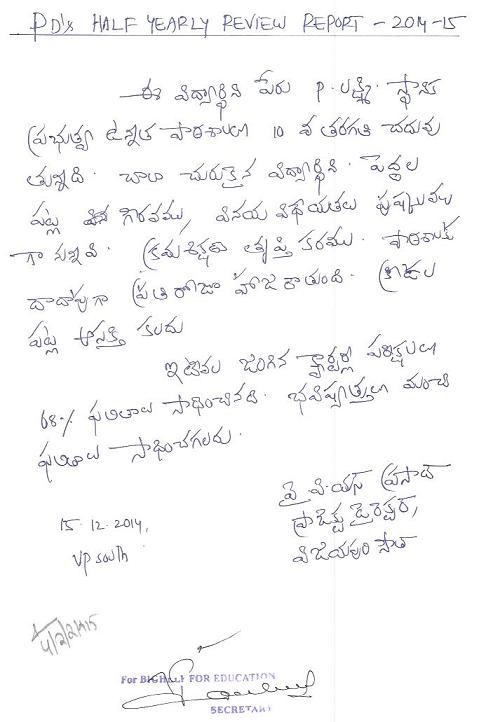 PD's HALF YEARLY REVIEW REPORT - 2014-15
ఈ విద్యార్థిని పేరు P. లక్ష్మి. స్థానిక
ప్రభుత్వ ఉన్నత పాఠశాలలో 10 వ తరగతి చదువు
తున్నది. చాలా చురుకైన విద్యార్థిని. పెద్దల
పట్ల గౌరవము, వినయ విధేయతలు పుష్కలము
గా నున్నవి. క్రమశిక్షణ తృప్తి కరము. పాఠశాలకు
దాదాపుగా ప్రతి రోజూ హాజరౌతుంది. క్రీడల
పట్ల ఆసక్తి కలదు
ఇటీవల జరిగిన క్వార్టర్లీ పరీక్షలలో
68% ఫలితాలు సాధించినది. భవిష్యత్తులో మంచి
ఫలితాలు సాధించగలదు.
వై. వి. యస్ ప్రసాద్
ప్రాజెక్టు డైరెక్టర్,
విజయపురి సౌత్
15.12.2014,
VP South
4/2/2015
For BIGHELP FOR EDUCATION
SECRETARY